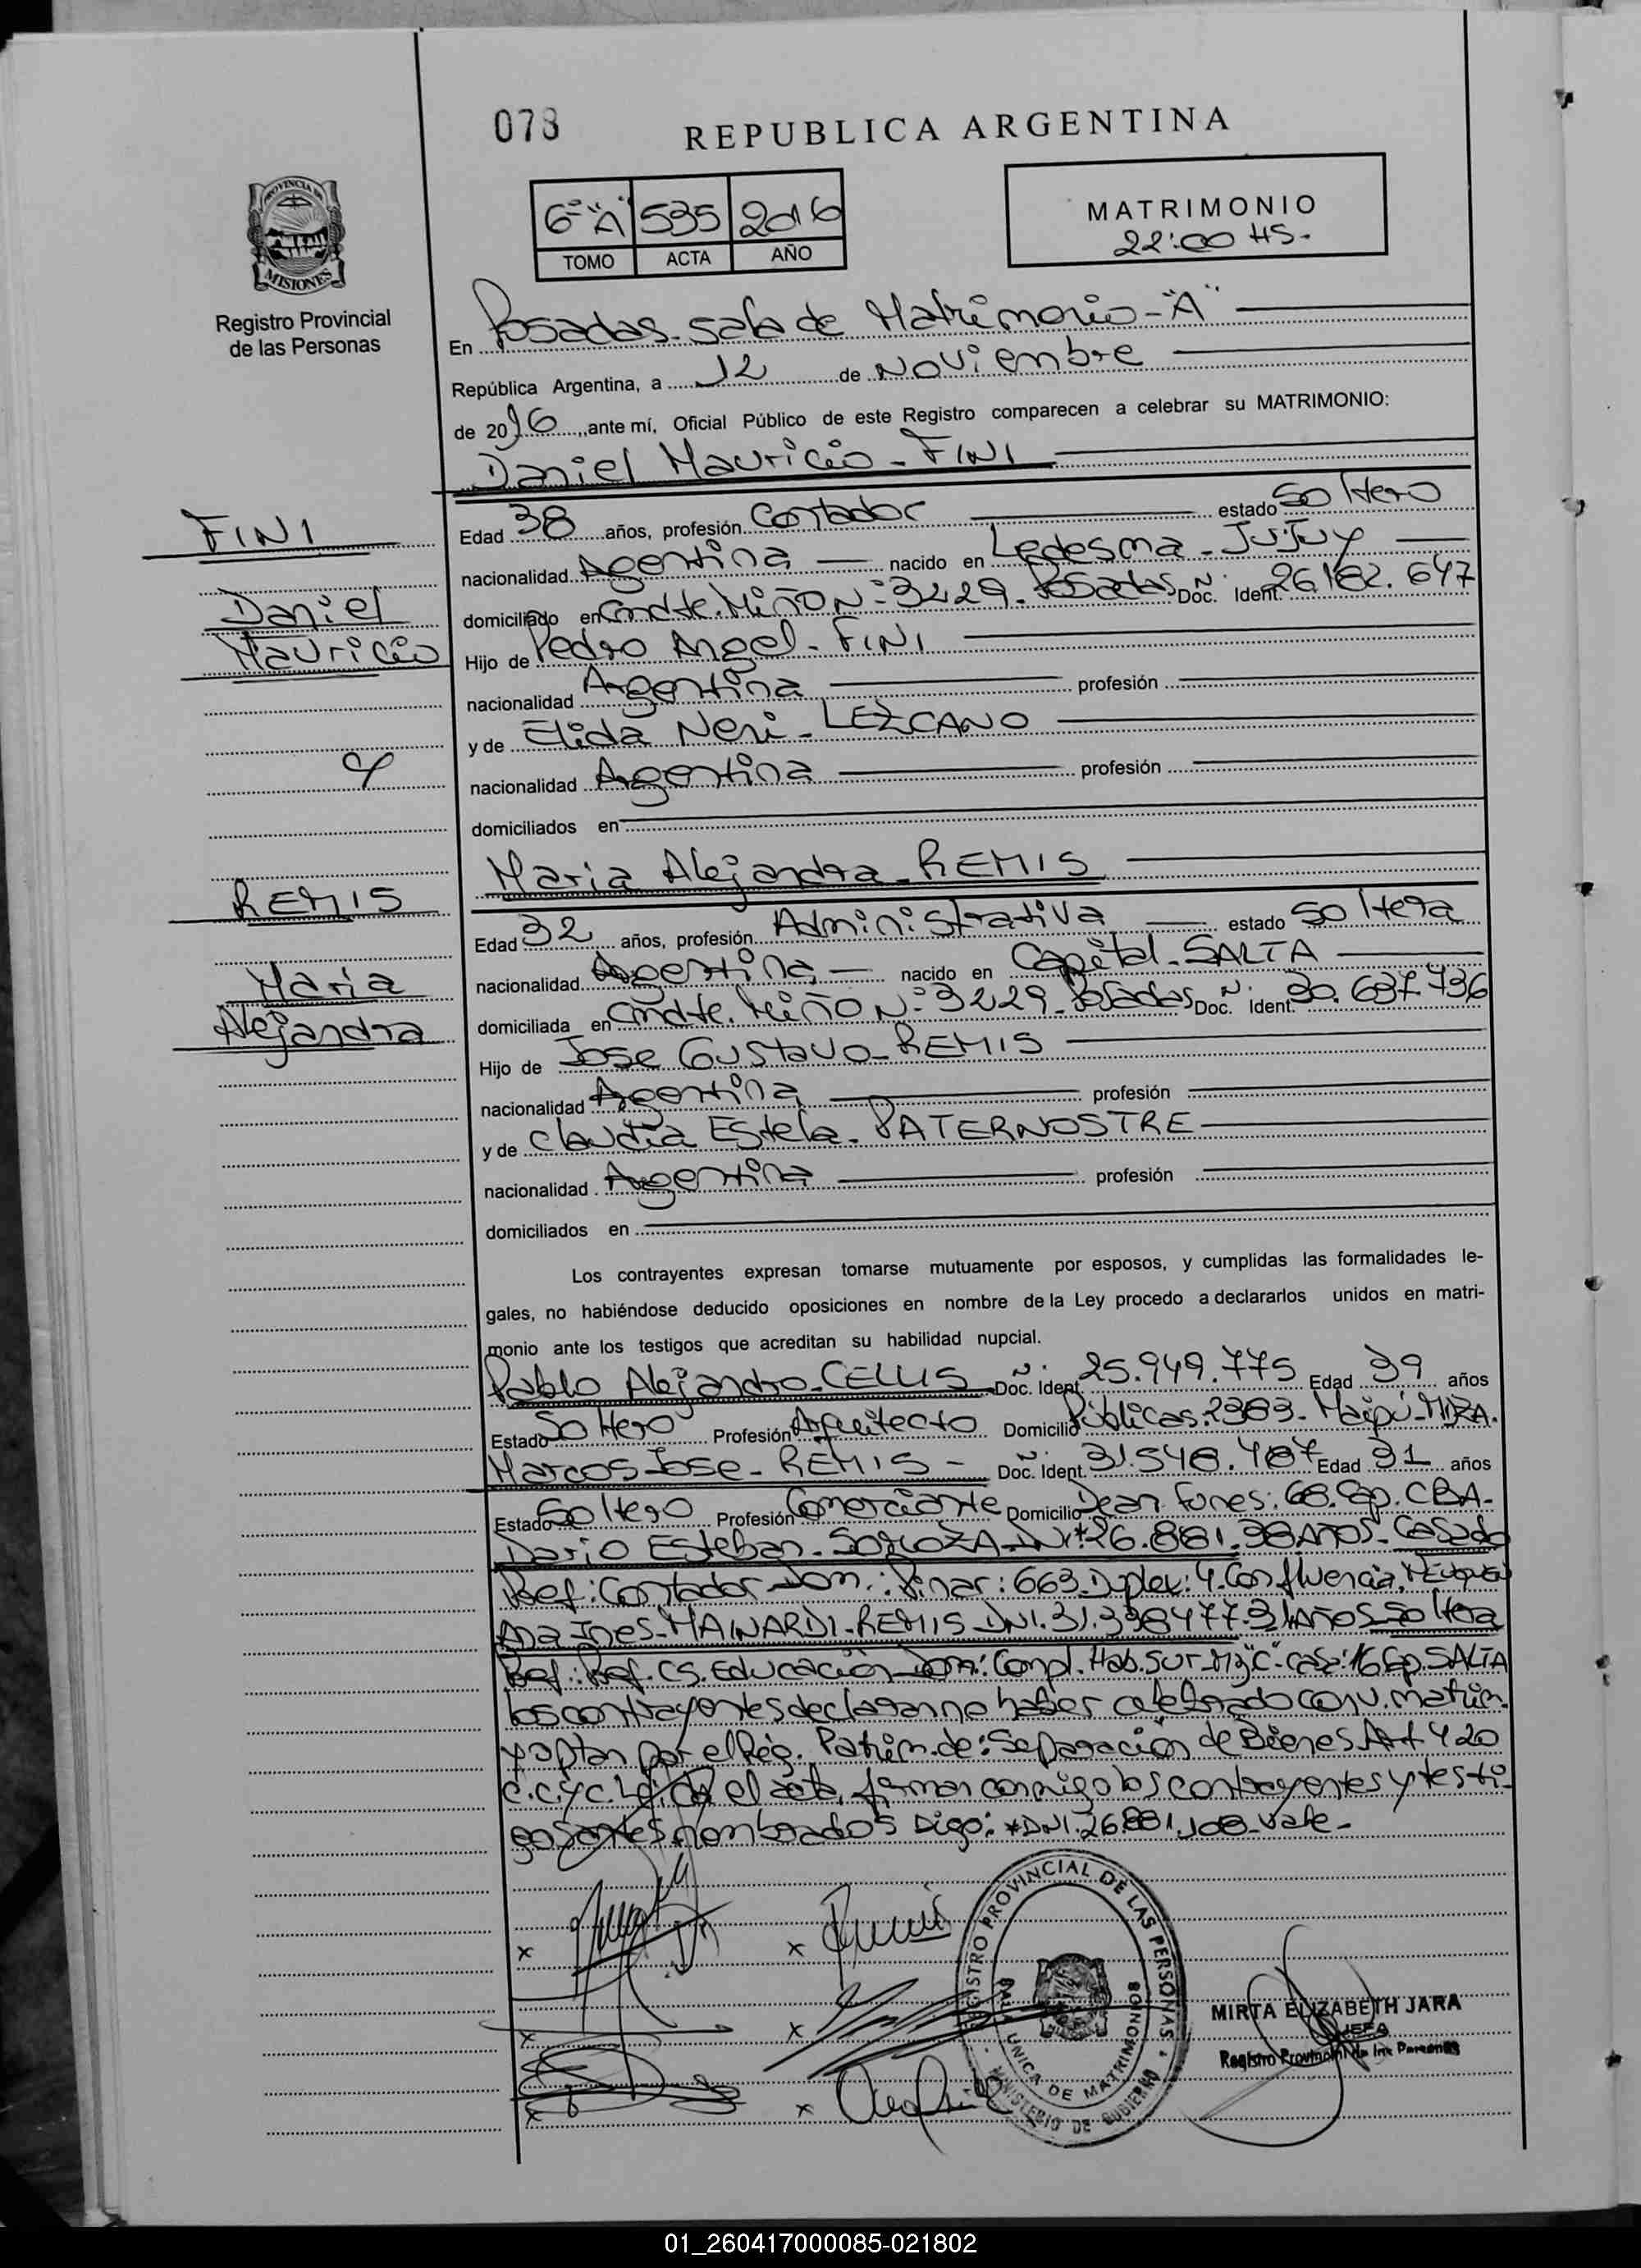 078
REPUBLICA ARGENTINA
PROVINCIA DE
MISIONES
Registro Provincial
de las Personas
6º "A" 535 2016
TOMO ACTA AÑO
MATRIMONIO
22:00 HS.
En Posadas. Sala de Matrimonio - "A"
República Argentina, a 12 de Noviembre
de 2016, ante mí, Oficial Público de este Registro comparecen a celebrar su MATRIMONIO:
Daniel Mauricio - FINI
FINI
Daniel
Mauricio
y
REMIS
Maria
Alejandra
Edad 38 años, profesión Contador estado Soltero
nacionalidad Argentina nacido en Ledesma - Jujuy
domiciliado en Cmdte. Miño Nº 3229. Posadas Doc. Ident. 26.182.647
Hijo de Pedro Angel - FINI
nacionalidad Argentina profesión
y de Elida Neri - LEZCANO
nacionalidad Argentina profesión
domiciliados en
Maria Alejandra - REMIS
Edad 32 años, profesión Administrativa estado Soltera
nacionalidad Argentina nacido en Capital - SALTA
domiciliada en Cmdte. Miño Nº 3229. Posadas Doc. Ident. 30.637.736
Hijo de Jose Gustavo - REMIS
nacionalidad Argentina profesión
y de Claudia Estela - PATERNOSTRE
nacionalidad Argentina profesión
domiciliados en
Los contrayentes expresan tomarse mutuamente por esposos, y cumplidas las formalidades le-
gales, no habiéndose deducido oposiciones en nombre de la Ley procedo a declararlos unidos en matri-
monio ante los testigos que acreditan su habilidad nupcial.
Pablo Alejandro - CELLIS Doc. Ident. 25.949.775 Edad 39 años
Estado Soltero Profesión Arquitecto Domicilio Públicas: 2383 - Maipú - MZA.
Marcos Jose - REMIS - Doc. Ident. 31.548.787 Edad 31 años
Estado Soltero Profesión Comerciante Domicilio Dean Funes: 68. Cap. CBA -
Dario Esteban - DNI* 26.881. 38 Años - Casado
Prof: Contador - Dom: Pinar: 663. Duplex: 4. Confluencia,
Ana Ines - MAINARDI - REMIS - DNI. 31.338477. 31 Años Soltera
Prof: Prof. Cs. Educación - Dom: Compl. Hab. Sur - Mz "C" - casa: 16 Cap. SALTA
los contrayentes declaran no haber celebrado conv. matrim.
y optan por el Rég. Patrim. de: Separación de Bienes Art 420
C.C.yC. Leída el acta, firman conmigo los contrayentes y testi-
gos antes nombrados Digo: *DNI. 26.881.108 - Vale -
REGISTRO PROVINCIAL DE LAS PERSONAS
SALA UNICA DE MATRIMONIOS
MINISTERIO DE GOBIERNO
MIRTA ELIZABETH JARA
JEFA
Registro Provincial de las Personas
01_260417000085-021802